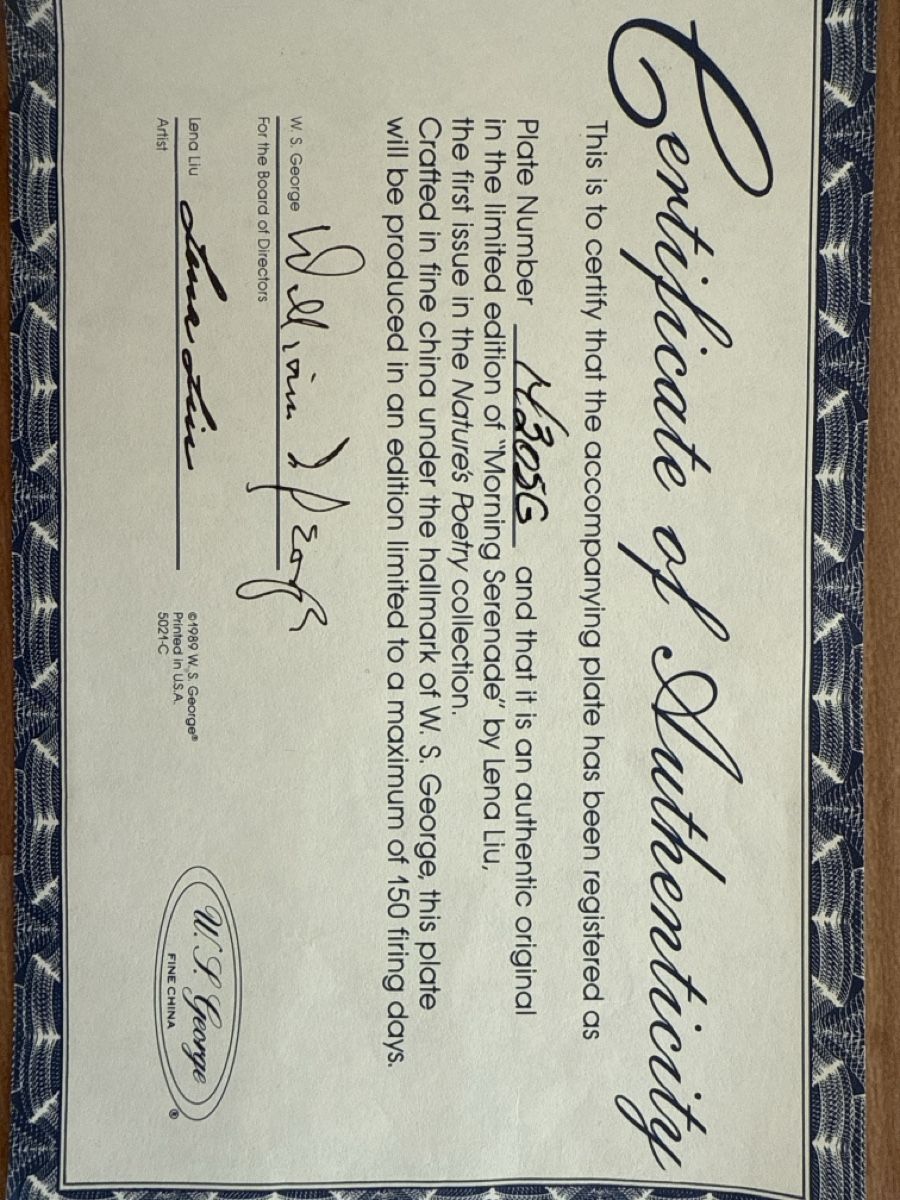 Certificate of Authenticity
This is to certify that the accompanying plate has been registered as
Plate Number and that it is an authentic original
in the limited edition of "Morning Serenade" by Lena Liu,
the first issue in the Nature's Poetry collection.
Crafted in fine china under the hallmark of W. S. George, this plate
will be produced in an edition limited to a maximum of 150 firing days.
W. S. George
For the Board of Directors
Lena Liu Lena Liu
Artist
©1989 W. S. George®
Printed in U.S.A.
5021-C
W. S. George
FINE CHINA
®